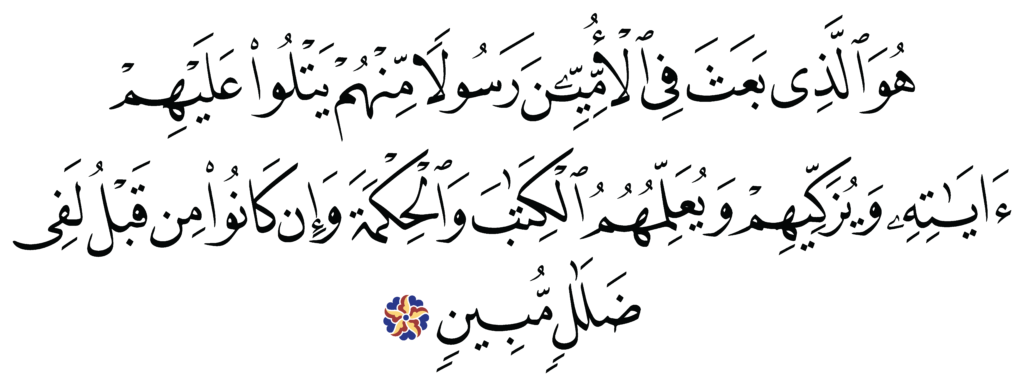 هُوَ ٱلَّذِى بَعَثَ فِى ٱلْأُمِّيِّۦنَ رَسُولًا مِّنْهُمْ يَتْلُوا۟ عَلَيْهِمْ
ءَايَـٰتِهِۦ وَيُزَكِّيهِمْ وَيُعَلِّمُهُمُ ٱلْكِتَـٰبَ وَٱلْحِكْمَةَ وَإِن كَانُوا۟ مِن قَبْلُ لَفِى
ضَلَـٰلٍ مُّبِينٍ